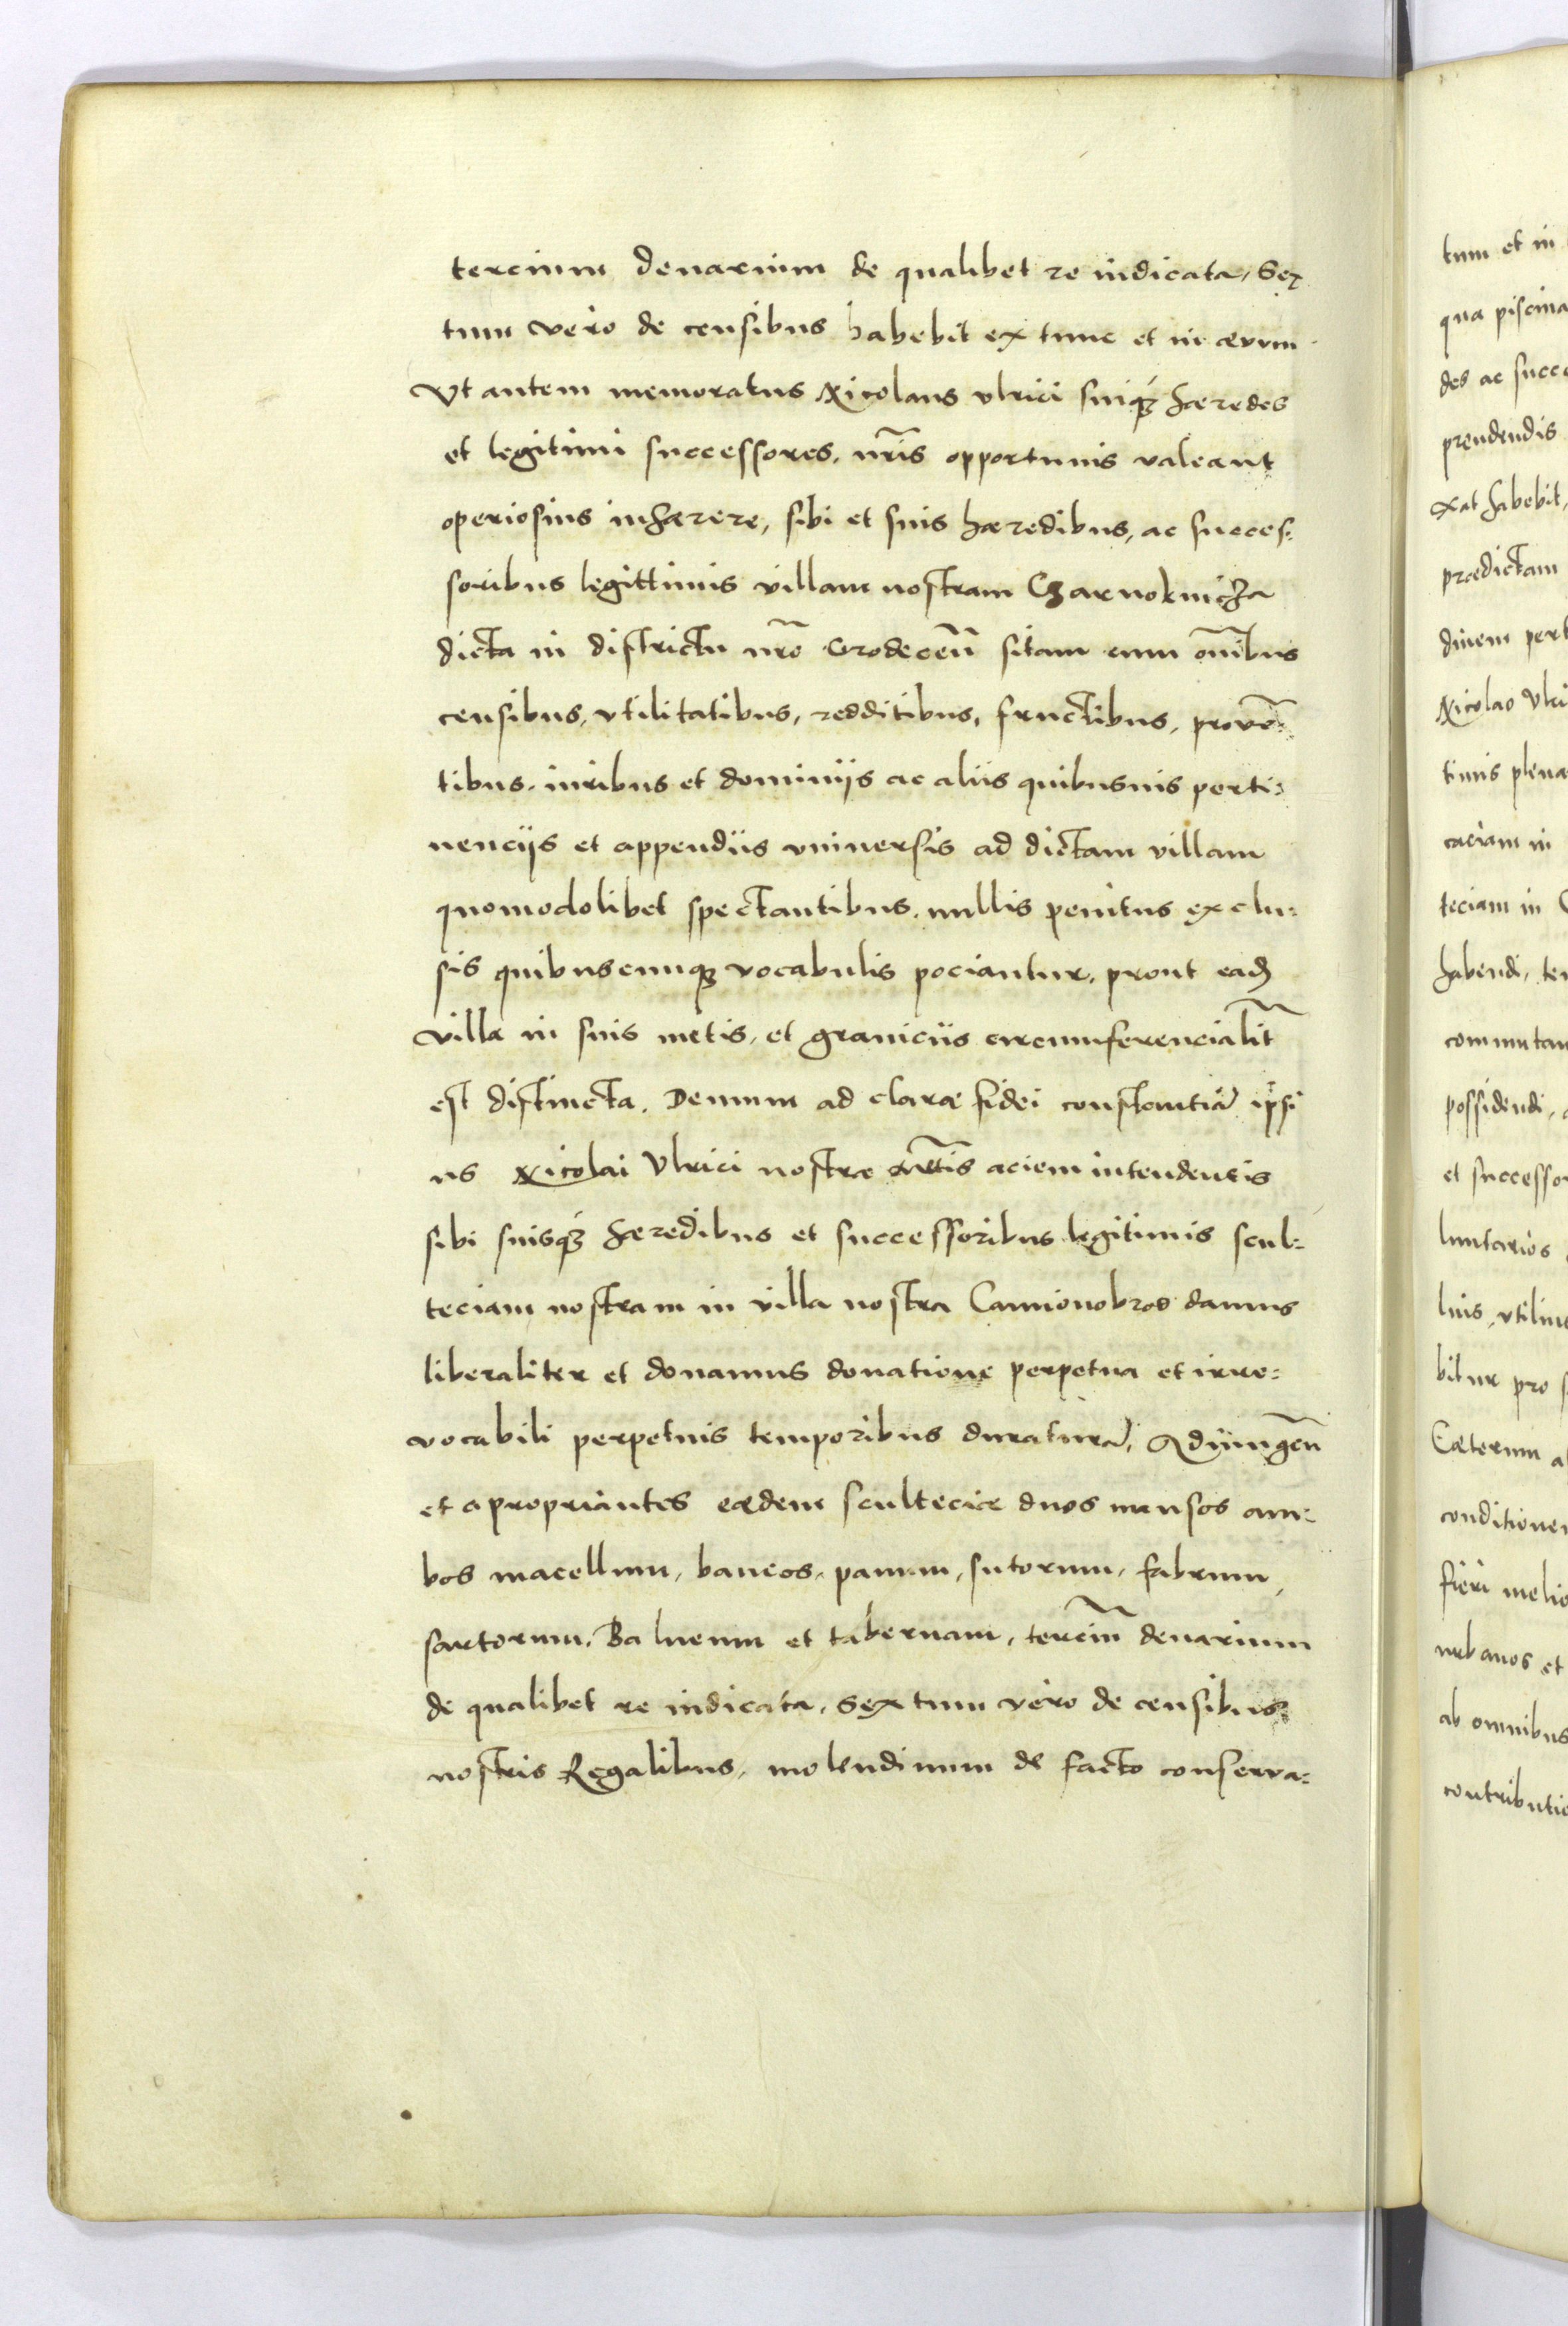 tercium denarium de qualibet re iudicata, Sex
tum vero de censibus habebit ex tunc et in ævum
Vt autem memoratus Nicolaus vlrici suiq́ȝ hæredes
et legitimi successores, nr̃is opportunis valeant
operiosius inhærere, sibi et suis hæredibus, ac succes:
soribus legittimis villam nostram Czarnokuicza
dicta in districtu nr̃o Grodeceñ sitam cum om̃ibus
censibus, vtilitatibus, redditibus, fructibus, provẽ:
tibus, iuribus et dominijs ac aliis quibusuis perti:
nencijs et appendiis vniuersis ad dictam villam
quomodolibet spectantibus, nullis penitus exclu:
sis quibuscunqȝ vocabulis pociantur, prout ead̃
villa in suis metis, et graniciis circumferencialit̃
est distincta. Demum ad claræ fidei constantiã ipsi
us Nicolai Vlrici nostræ m̃tis aciem intendentis
sibi suisq́ȝ hæredibus et successoribus legitimis scul:
teciam nostram in villa nostra Camionobrod damus
liberaliter et donamus donatione perpetua et irre:
vocabili perpetuis temporibus duraturã, Adiungeñ
et apropriantes eædem sculteciæ duos mansos am:
bos macellum, bancos, panum, sutorum, fabrum,
sartorum, Balneum et tabernam, terciũ denarium
de qualibet re iudicata, sextum vero de censibus
nostris Regalibus, molendinum de facto conserva:
tum et in
qua piscina
des ac succe
prendendis
xat habebit,
prædictam
dinem pert
Nicolao Vlri
timis plena
caciam in
teciam in
habendi, te
commutan
possidendi,
et successor
luntarios
lius, vtilius
bitur pro
Cæterum a
conditione
fieri melio
urbanos et
ab omnibus
contributio